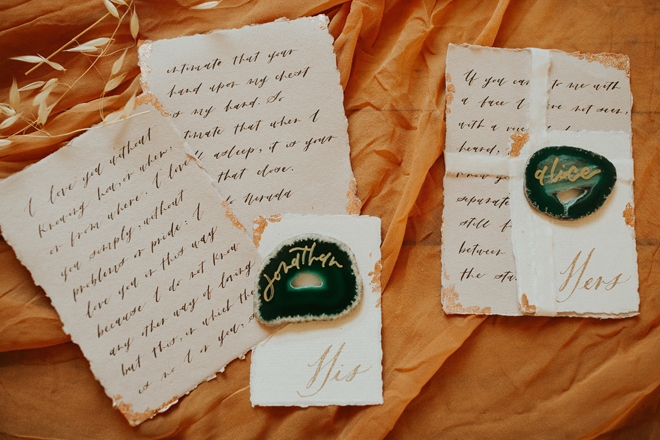 I love you without
knowing how, or when,
or from where, I love
you simply, without
problems or pride: I
love you in this way
because I do not know
any other way of loving
but this, in which the
is no I or you,
intimate that your
hand upon my chest
is my hand. So
intimate that when I
asleep, it is your
that close.
Neruda
Jonathan
His
If you can to me with
a face I have not seen,
with a
heard,
know
separate
still
between
the
alice
Hers